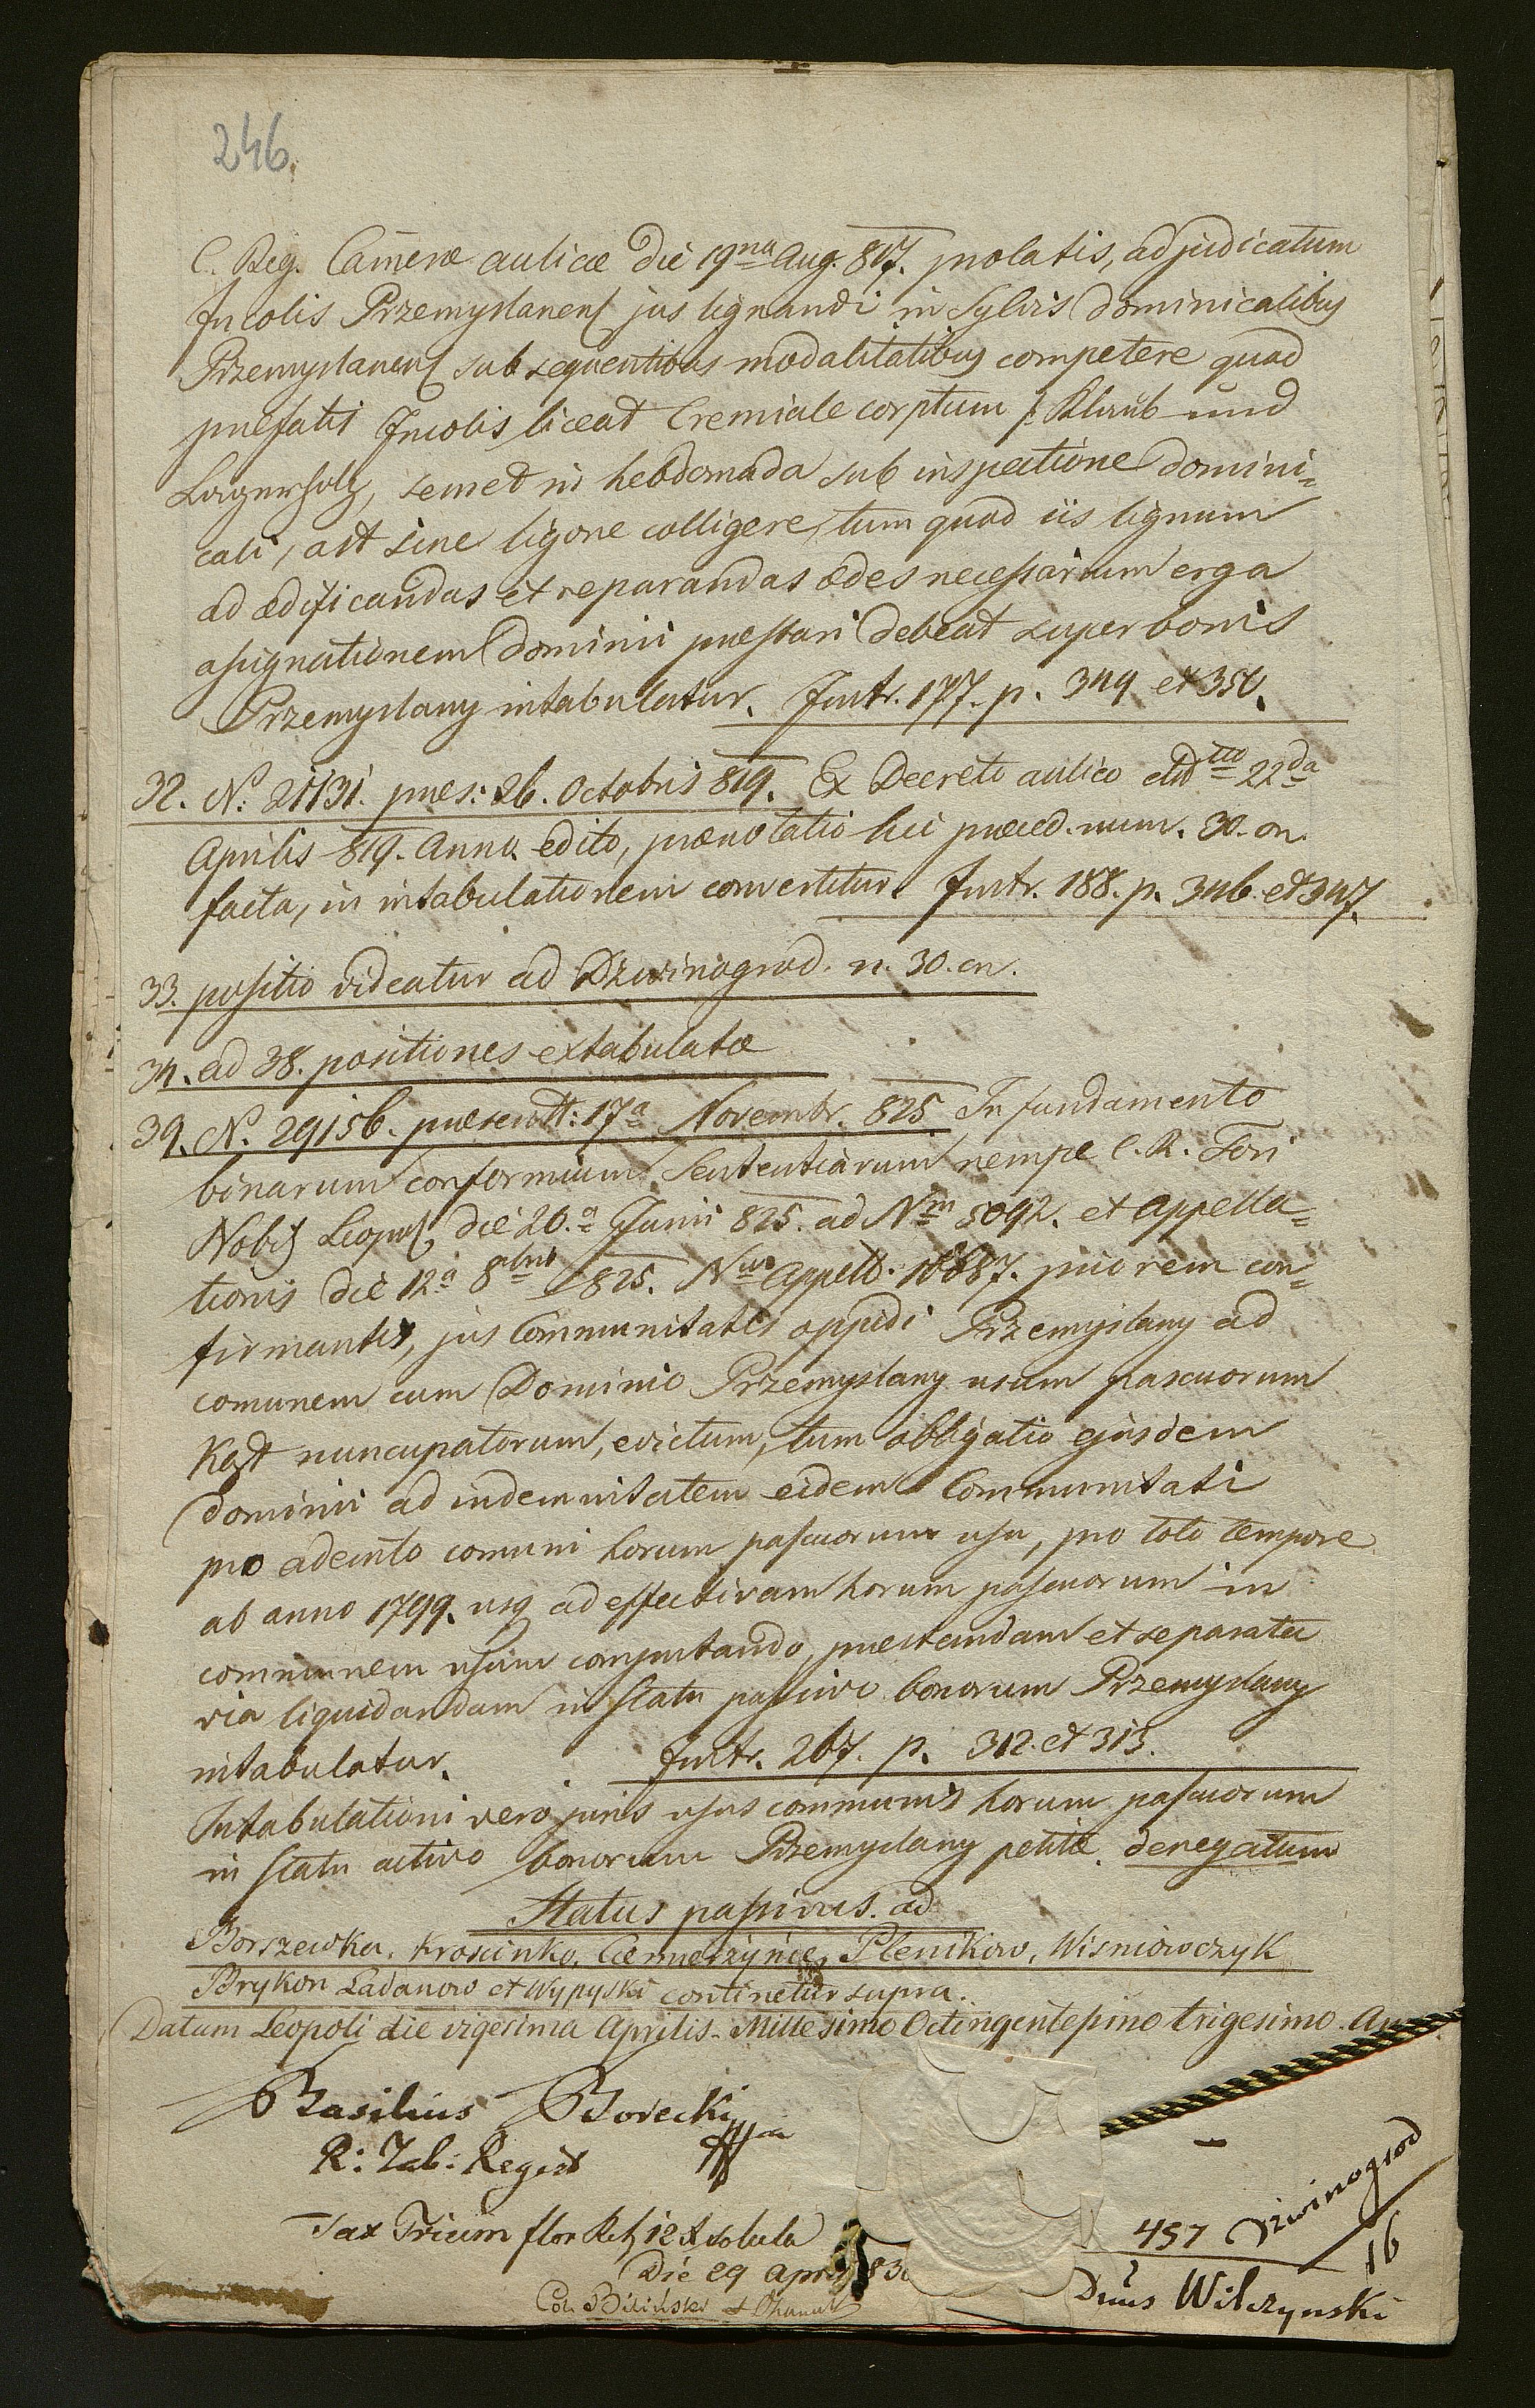 246.
C. Reg. Cam̄eræ aulicæ die 19na Aug. 817. prolatis, adjudicatum
Incolis Przemyslanens jus lignandi in Sylvis dominicalibus
Przemyslanens sub sequentibus modalitatibus competere quod
præfatis Incolis, liceat Cremiale corptum /: Klaub und
Lagerholz, semet in hebdomada sub inspectione domini=
cali, ast sine ligone colligere, tum quod iis lignum
ad ædificandas et reparandas ædes necessarium erga
assignationem Dominii præstari debeat super bonis
Przemyslany intabulatur. Instr. 177. p. 349 et 350.
32. N: 21131. præs: 26. Octobris 819. Ex Decreto aulico ddtto 22da
Aprilis 819. Anno edito, prænotatio hic præced. num. 30. on.
facta, in intabulationem convertitur. Instr. 188. p. 346 et 347.
33. positio videatur ad Dzwinogrod. n. 30. on.
34. ad 38. positiones extabulatæ
39. N. 29156. præsentt: 17a Novembr. 825 In fundamento
binarum conformium Sententiarum nempe C. R. Fori
Nobil Leopol, die 20.a Junii 825. ad Nm 5092. et Appella=
tionis die 12a 8bris 1825. Nus Appell. 10887. priorem con=
firmantis, jus Communitatis oppidi Przemyslany ad
comunem cum Dominio Przemyslany usum pascuorum
Kąt nuncupatorum, evictum, tum obligatio ejusdem
Dominii ad indemnitatem eidem Communitati
pro ademto comuni horum pascuorum usu, pro toto tempore
ab anno 1799. usq ad effectivam horum pascuorum in
communem usum computando, præstandam et separata
via liquidandam in statu passivo bonorum Przemyslany
intabulatur. Instr. 267. p. 312. et 313.
Intabulationi vero juris usus communis horum pascuorum
in statu activo bonorum Przemyslany petitæ denegatum
Status passivus. ad
Borszewka, Krosienko, Ciemierzynce, Plenikow, Wisniowczyk
Brykon Ladanow et Wypyski continetur supra.
Datum Leopoli die vigesima Aprilis. Millesimo Octingentesimo trigesimo. An
Basilius Borecki
R: Tab: Regist
Tax Trium flor Rh 12 x soluta
Die 29 Apri 830
Col. Biliński
457 Dzwinogrod
16
Dnus Wilczynski